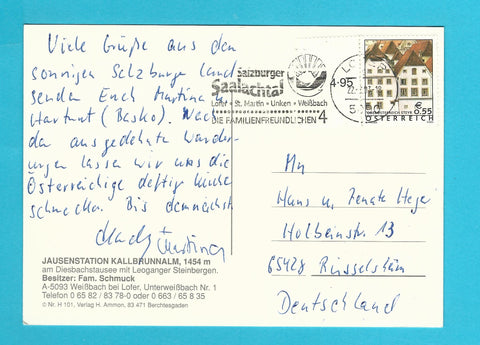 Viele Grüße aus dem
sonnigen Salzburger Land
senden Euch Martina
Hartmut (Basko). Nach
da ausgedehnte Wander-
ungen lassen wir uns die
Österreichige deftige Küche
schmecken. Bis demnächst
Martina
JAUSENSTATION KALLBRUNNALM, 1454 m
am Diesbachstausee mit Leoganger Steinbergen.
Besitzer: Fam. Schmuck
A-5093 Weißbach bei Lofer, Unterweißbach Nr. 1
Telefon 0 65 82 / 83 78-0 oder 0 663 / 65 8 35
© Nr. H 101, Verlag H. Ammon, 83 471 Berchtesgaden
Salzburger
Saalachtal
Lofer · St. Martin · Unken · Weißbach
DIE FAMILIENFREUNDLICHEN 4
€ 0.55
ÖSTERREICH
An
Hans u. Renate Heger
Holbeinstr. 13
65428 Rüsselsheim
Deutschland